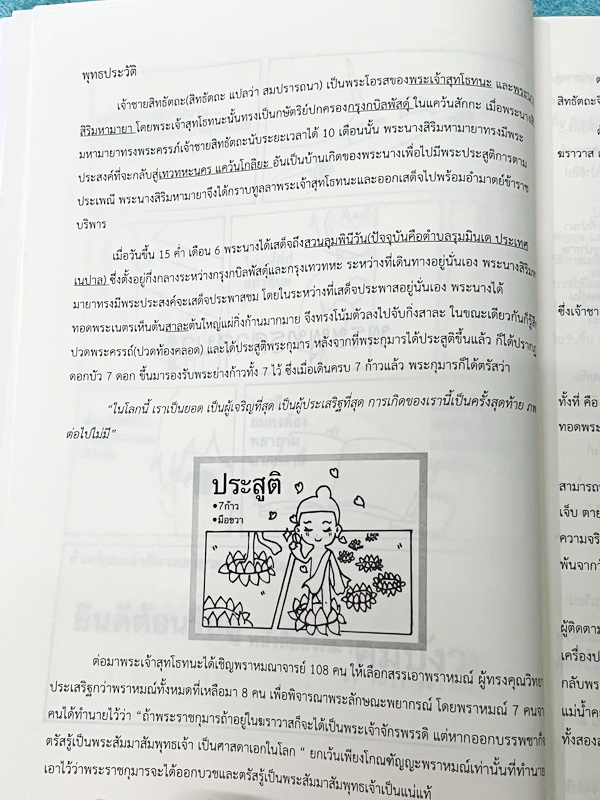 พุทธประวัติ
เจ้าชายสิทธัตถะ(สิทธัตถะ แปลว่า สมปรารถนา) เป็นพระโอรสของพระเจ้าสุทโธทนะ และพระนาง
สิริมหามายา โดยพระเจ้าสุทโธทนะนั้นทรงเป็นกษัตริย์ปกครองกรุงกบิลพัสดุ์ ในแคว้นสักกะ เมื่อพระนางสิริ
มหามายาทรงพระครรภ์เจ้าชายสิทธัตถะนับระยะเวลาได้ 10 เดือนนั้น พระนางสิริมหามายาทรงมีพระ
ประสงค์ที่จะกลับสู่เทวทหะนคร แคว้นโกลิยะ อันเป็นบ้านเกิดของพระนางเพื่อไปมีพระประสูติการตาม
ประเพณี พระนางสิริมหามายาจึงได้กราบทูลลาพระเจ้าสุทโธทนะและออกเสด็จไปพร้อมอำมาตย์ข้าราช
บริพาร
เมื่อวันขึ้น 15 ค่ำ เดือน 6 พระนางได้เสด็จถึงสวนลุมพินีวัน(ปัจจุบันคือตำบลรุมมินเด ประเทศ
เนปาล) ซึ่งตั้งอยู่กึ่งกลางระหว่างกรุงกบิลพัสดุ์และกรุงเทวทหะ ระหว่างที่เดินทางอยู่นั่นเอง พระนางสิริมหา
มายาทรงมีพระประสงค์จะเสด็จประพาสชม โดยในระหว่างที่เสด็จประพาสอยู่นั่นเอง พระนางได้
ทอดพระเนตรเห็นต้นสาละต้นใหญ่แผ่กิ่งก้านมากมาย จึงทรงโน้มตัวลงไปจับกิ่งสาละ ในขณะเดียวกันก็รู้สึก
ปวดพระครรถ์(ปวดท้องคลอด) และได้ประสูติพระกุมาร หลังจากที่พระกุมารได้ประสูติขึ้นแล้ว ก็ได้ปรากฏ
ดอกบัว 7 ดอก ขึ้นมารองรับพระย่างก้าวทั้ง 7 ไว้ ซึ่งเมื่อเดินครบ 7 ก้าวแล้ว พระกุมารก็ได้ตรัสว่า
“ในโลกนี้ เราเป็นยอด เป็นผู้เจริญที่สุด เป็นผู้ประเสริฐที่สุด การเกิดของเรานี้เป็นครั้งสุดท้าย ภพ
ต่อไปไม่มี”
ประสูติ
•7ก้าว
•มือขวา
ต่อมาพระเจ้าสุทโธทนะได้เชิญพราหมณาจารย์ 108 คน ให้เลือกสรรเอาพราหมณ์ ผู้ทรงคุณวิทยา
ประเสริฐกว่าพราหมณ์ทั้งหมดที่เหลือมา 8 คน เพื่อพิจารณาพระลักษณะพยากรณ์ โดยพราหมณ์ 7 คนจาก
คนได้ทำนายไว้ว่า “ถ้าพระราชกุมารถ้าอยู่ในฆราวาสก็จะได้เป็นพระเจ้าจักรพรรดิ แต่หากออกบรรพชาก็จะ
ตรัสรู้เป็นพระสัมมาสัมพุทธเจ้า เป็นศาสดาเอกในโลก “ ยกเว้นเพียงโกณฑัญญะพราหมณ์เท่านั้นที่ทำนาย
เอาไว้ว่าพระราชกุมารจะได้ออกบวชและตรัสรู้เป็นพระสัมมาสัมพุทธเจ้าเป็นแน่แท้
สิทธัตถะจึง
ฆราวาส
ซึ่งเจ้าชา
ทั้งที่ คือ
ทอดพระ
สามารถ
เจ็บ ตาย
ความจริ
พ้นจาก
ผู้ติดตาม
เครื่องป
กลับพร
แม่น้ำค
ทั้งสอง